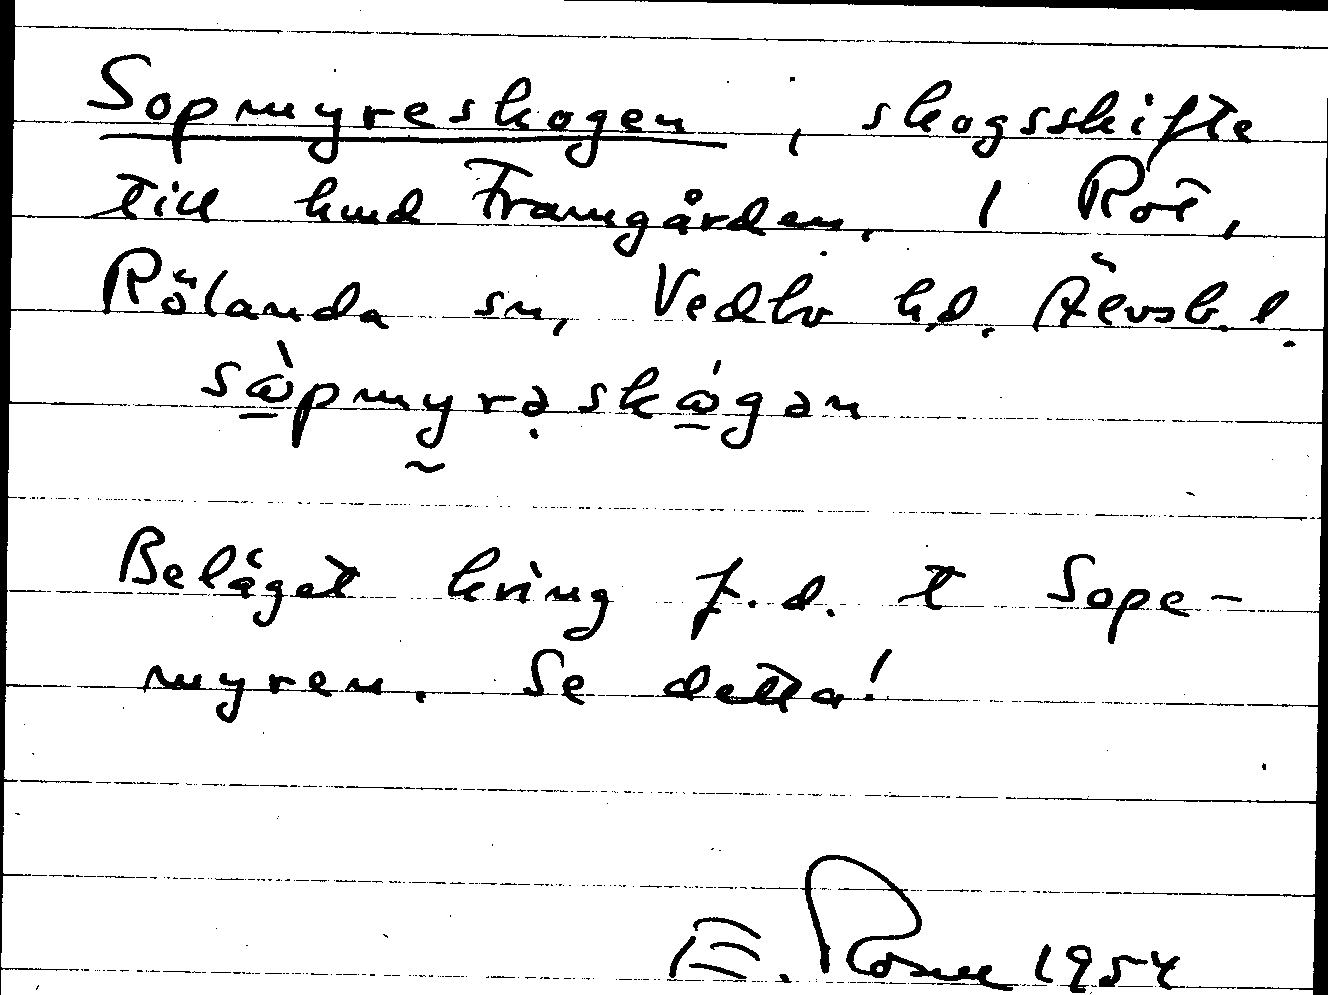 Sopmyreskogen, skogsskifte
till hmd Framgården, 1 Röt,
Rölanda sn, Vedbo hd. Älvsb. l.
sɷ̀pmyrəskɷ́gən
Beläget kring f.d. t Sope-
myren. Se detta!
E. Rosell 1954